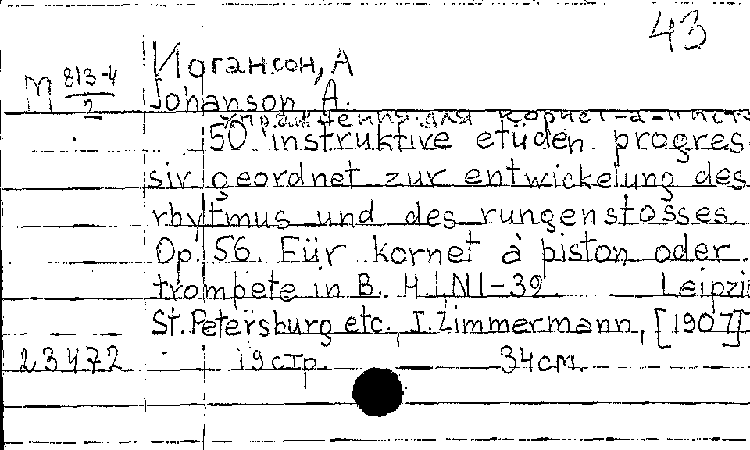 43
Иогансон, А
М 813-4/2
Johanson, A.
Упражнения для корнет-а-пист
50 instruktive etüden progres
siv geordnet zur entwickelung des
rhytmus und des rungenstosses
Op. 56. Für kornet à piston oder
trompete in B. H I, N 1-39 Leipzi
St. Petersburg etc., I. Zimmermann, [1907]
23472 19 стр. 34 см.